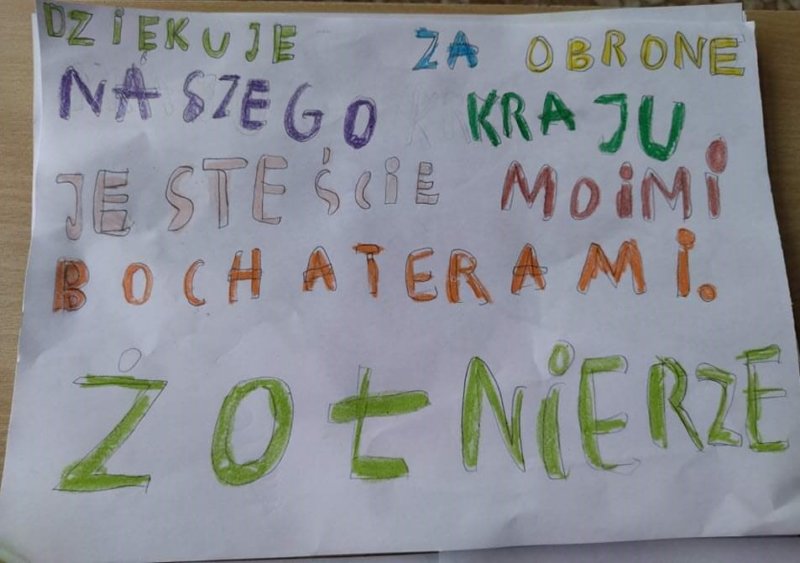 DZiĘKUJE ZA OBRONE
NASZEGO KRAJU
JESTEŚCiE MOiMi
BOCHATERAMi.
ŻOŁNiERZE